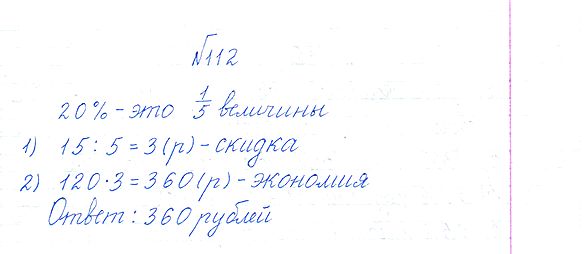 №112
20% - это 1/5 величины
1) 15 : 5 = 3 (р) - скидка
2) 120 · 3 = 360 (р) - экономия
Ответ : 360 рублей